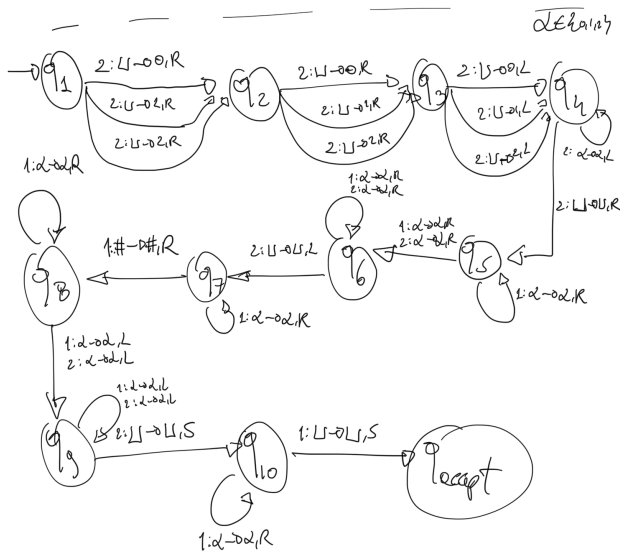 α∈{0,1,2}
q1
2:⊔→0,R
2:⊔→2,R
2:⊔→2,R
q2
2:⊔→0,R
2:⊔→2,R
2:⊔→2,R
q3
2:⊔→0,L
2:⊔→1,L
2:⊔→2,L
q4
2:α→α,L
2:⊔→⊔,R
q5
1:α→α,R
1:α→α,R
2:α→α,R
q6
1:α→α,R
2:α→α,R
2:⊔→⊔,L
q7
1:α→α,R
1:#→#,R
q8
1:α→α,R
1:α→α,L
2:α→α,L
q9
1:α→α,L
2:α→α,L
2:⊔→⊔,S
q10
1:α→α,R
1:⊔→⊔,S
qaccept